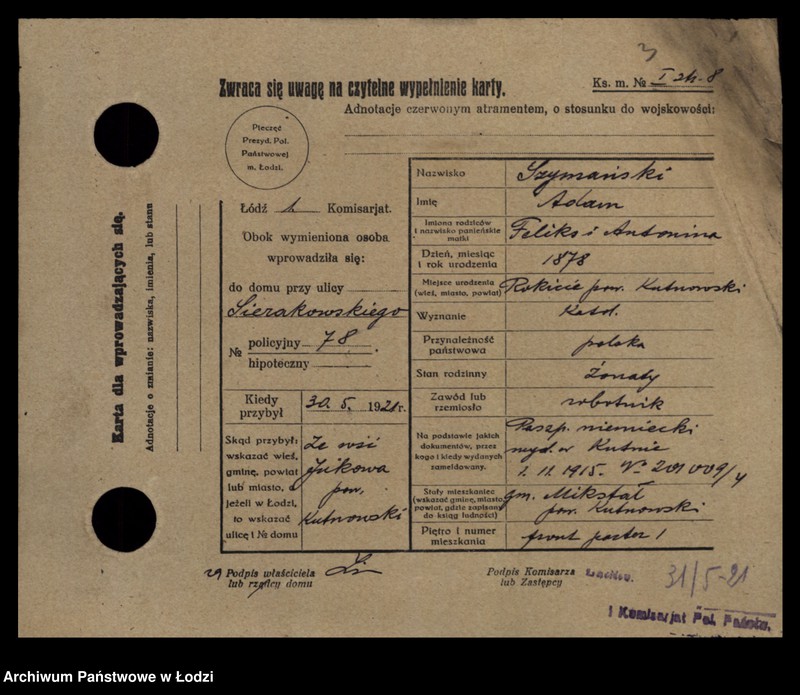 3
Zwraca się uwagę na czytelne wypełnienie karty.
Ks. m. № I 2h-8
Adnotacje czerwonym atramentem, o stosunku do wojskowości:
Pieczęć
Prezyd. Pol.
Państwowej
m. Łodzi.
Karta dla wprowadzających się.
Adnotacje o zmianie: nazwiska, imienia, lub stanu
Łódź 1 Komisarjat.
Obok wymieniona osoba
wprowadziła się:
do domu przy ulicy
Sierakowskiego
№ policyjny 78
hipoteczny
Kiedy przybył 30. 5. 1921 r.
Skąd przybył:
wskazać wieś,
gminę, powiat
lub miasto, a
jeżeli w Łodzi,
to wskazać
ulicę i № domu
Ze wsi
pow.
Kutnowski
Nazwisko Szymański
Imię Adam
Imiona rodziców
i nazwisko panieńskie
matki
Feliks i Antonina
Dzień, miesiąc
i rok urodzenia
1878
Miejsce urodzenia
(wieś, miasto, powiat)
Rokicie pow. Kutnowski
Wyznanie Katol.
Przynależność
państwowa
polska
Stan rodzinny żonaty
Zawód lub
rzemiosło
robotnik
Na podstawie jakich
dokumentów, przez
kogo i kiedy wydanych
zameldowany.
Paszp. niemiecki
wyd. w Kutnie
1. 11. 1915. №
Stały mieszkaniec
(wskazać gminę, miasto,
powiat, gdzie zapisany
do ksiąg ludności)
gm. Mikstal
pow. Kutnowski
Piętro i numer
mieszkania
front parter 1
Podpis właściciela
lub rządcy domu
Podpis Komisarza
lub Zastępcy
31/5-21
I Komisarjat Pol. Państw.
Archiwum Państwowe w Łodzi